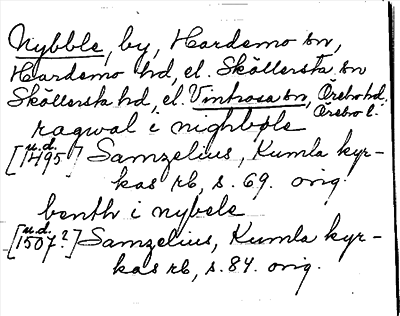 Nybble, by, Hardemo sn,
Hardemo hd, el. Sköllersta sn
Sköllersta hd, el. Vintrosa sn, Örebro hd,
Örebro l.
ragwal i nighbøle
[u.d. 1495?] Samzelius, Kumla kyr-
kas rb, s. 69. orig.
benth i nybele
[u.d. 1507?] Samzelius, Kumla kyr-
kas rb, s. 84. orig.